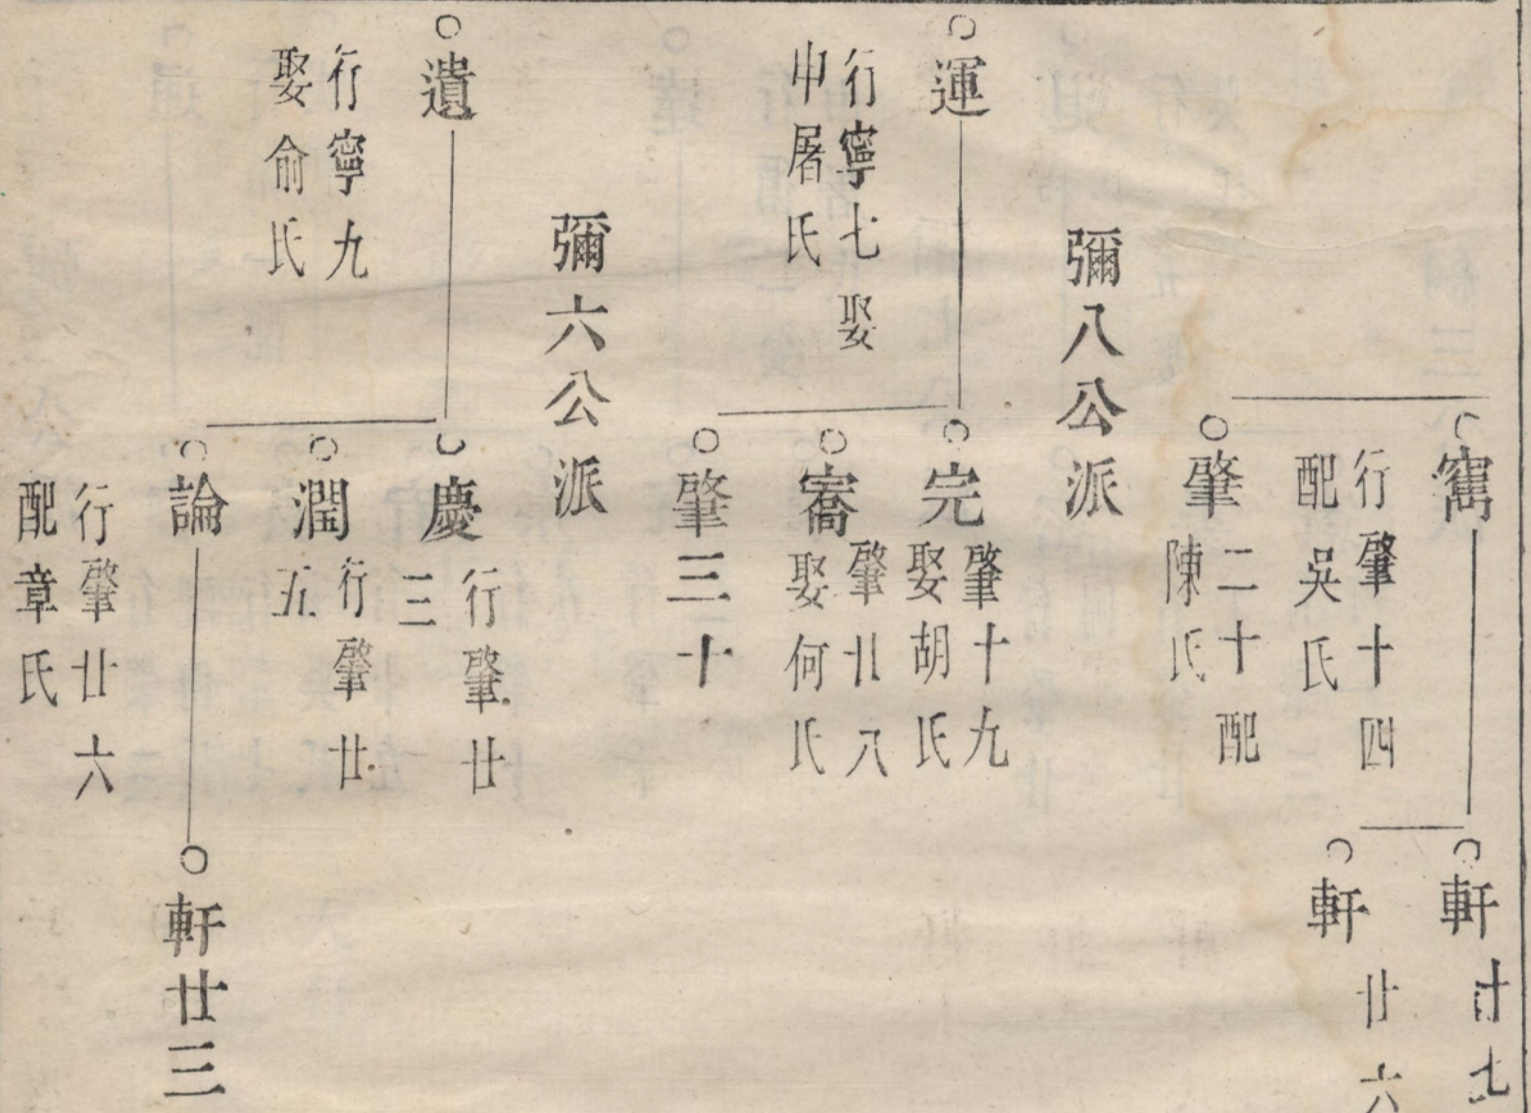 寯
行肇十四
配吳氏
軒廿七
軒
廿六
肇
二十配
陳氏
彌八公派
運
行寧七娶
申屠氏
完
肇十九
娶胡氏
寯
肇廿八
娶何氏
肇三十
彌六公派
遺
行寧九
娶俞氏
慶
行肇廿
三
潤
行肇廿
五
論
行肇廿六
配章氏
軒廿三